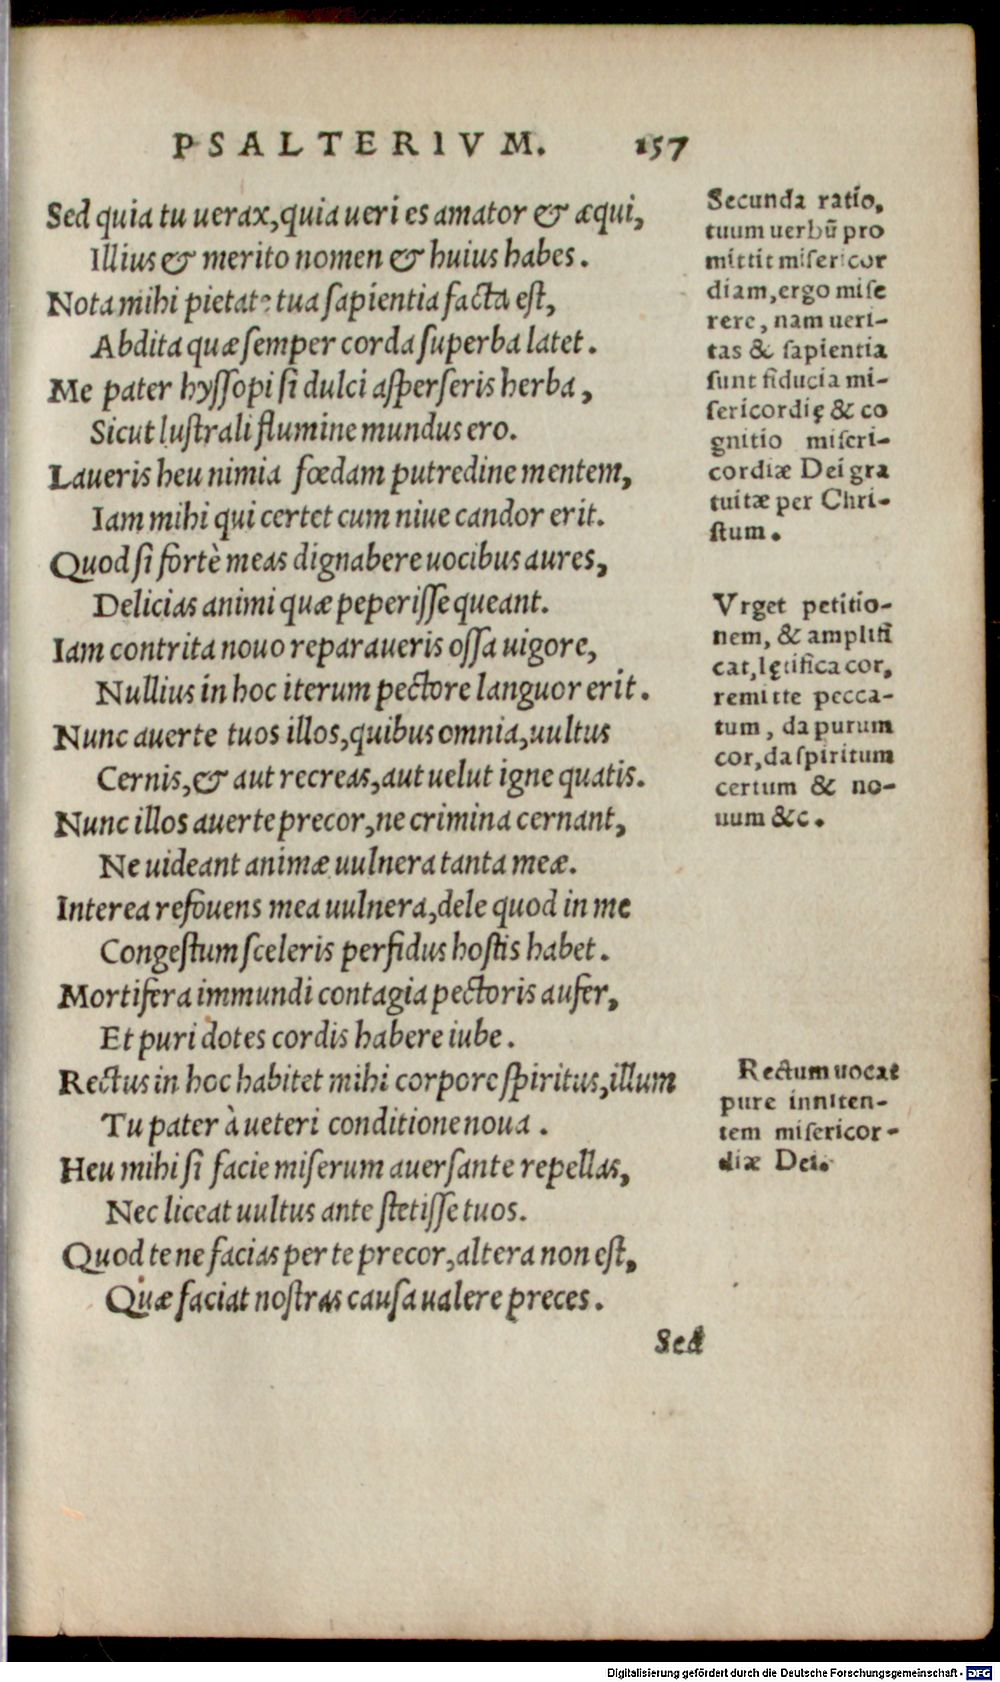 PSALTERIVM. 157
Sed quia tu uerax, quia ueri es amator & æqui,
Illius & merito nomen & huius habes.
Nota mihi pietate tua sapientia facta est,
Abdita quæ semper corda superba latet.
Me pater hyssopi si dulci asperseris herba,
Sicut lustrali flumine mundus ero.
Laueris heu nimia fœdam putredine mentem,
Iam mihi qui certet cum niue candor erit.
Quod si fortè meas dignabere uocibus aures,
Delicias animi quæ peperisse queant.
Iam contrita nouo reparaueris ossa uigore,
Nullius in hoc iterum pectore languor erit.
Nunc auerte tuos illos, quibus omnia, uultus
Cernis, & aut recreas, aut uelut igne quatis.
Nunc illos auerte precor, ne crimina cernant,
Ne uideant animæ uulnera tanta meæ.
Interea refouens mea uulnera, dele quod in me
Congestum sceleris perfidus hostis habet.
Mortifera immundi contagia pectoris aufer,
Et puri dotes cordis habere iube.
Rectus in hoc habitet mihi corpore spiritus, illum
Tu pater à ueteri conditione noua.
Heu mihi si facie miserum auersante repellas,
Nec liceat uultus ante stetisse tuos.
Quod te ne facias per te precor, altera non est,
Quæ faciat nostras causa ualere preces.
Sed
Secunda ratio,
tuum uerbũ pro
mittit misericor
diam, ergo mise
rere, nam ueri-
tas & sapientia
sunt fiducia mi-
sericordię & co
gnitio miseri-
cordiæ Dei gra
tuitæ per Chri-
stum.
Vrget petitio-
nem, & amplifi
cat, lętifica cor,
remitte pecca-
tum, da purum
cor, da spiritum
certum & no-
uum &c.
Rectum uocat
pure inniten-
tem misericor-
diæ Dei.
Digitalisierung gefördert durch die Deutsche Forschungsgemeinschaft - DFG